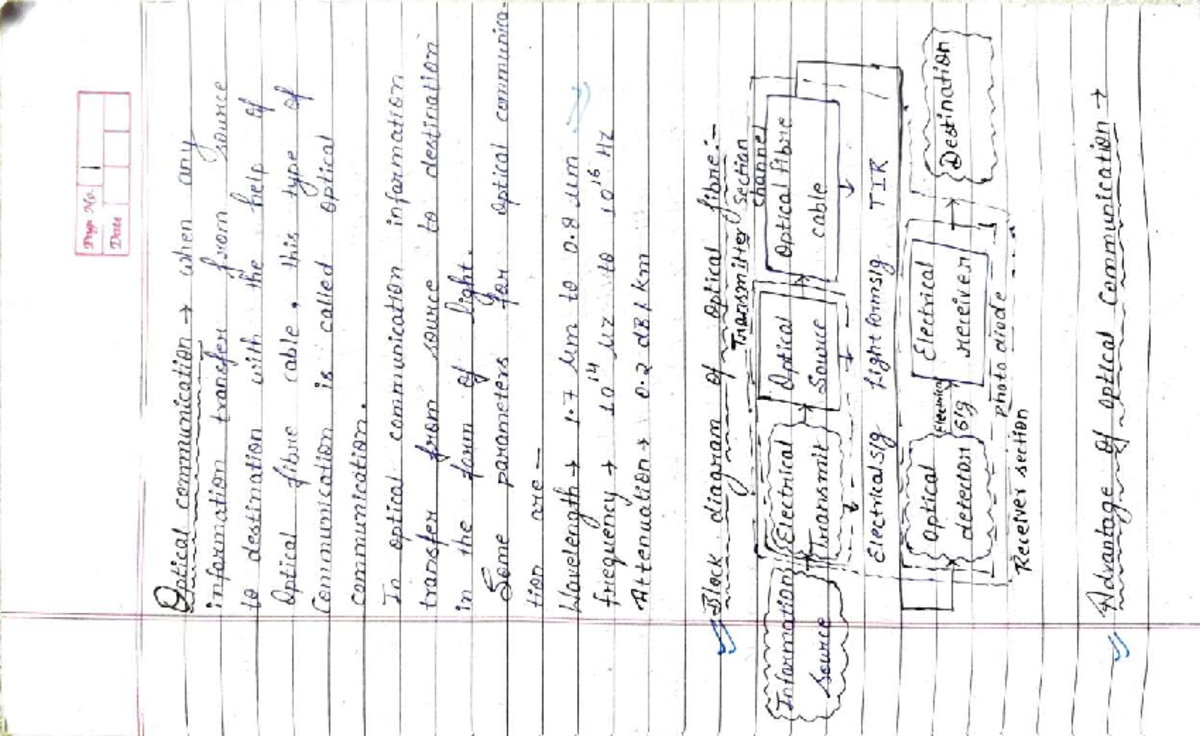 Page No. 1
Date
Optical communication → when any
information transfer from source
to destination with the help of
Optical fibre cable, this type of
Communication is called optical
communication.
In optical communication information
transfer from source to destination
in the form of light.
Some parameters for optical communica-
tion are -
Wavelength → 1.7 μm to 0.8 μm
frequency → 10^14 Hz to 10^16 Hz
Attenuation → 0.2 dB/km
Block diagram of optical fibre:-
Transmitter Section
Channel
Information source
Electrical Transmit
Optical Source
Optical fibre cable
Electrical sig
Light form sig
TIR
Optical detection
Electrical sig
Electrical receiver
Destination
Photo diode
Receiver section
Advantage of optical Communication →